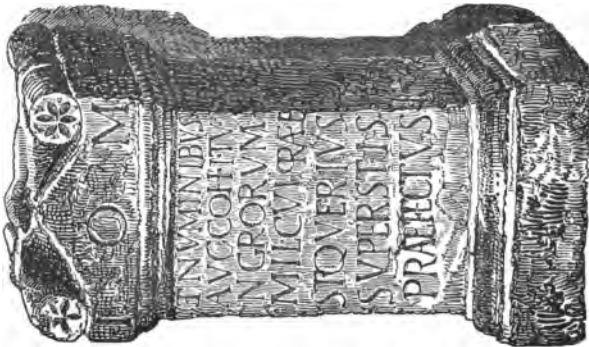 I O M
ENVMINIBVS
AVGCOHITV
NGRORVM
MILCVIPRAE
STQVERIVS
SVPERSTIS
PRAEFECTVS